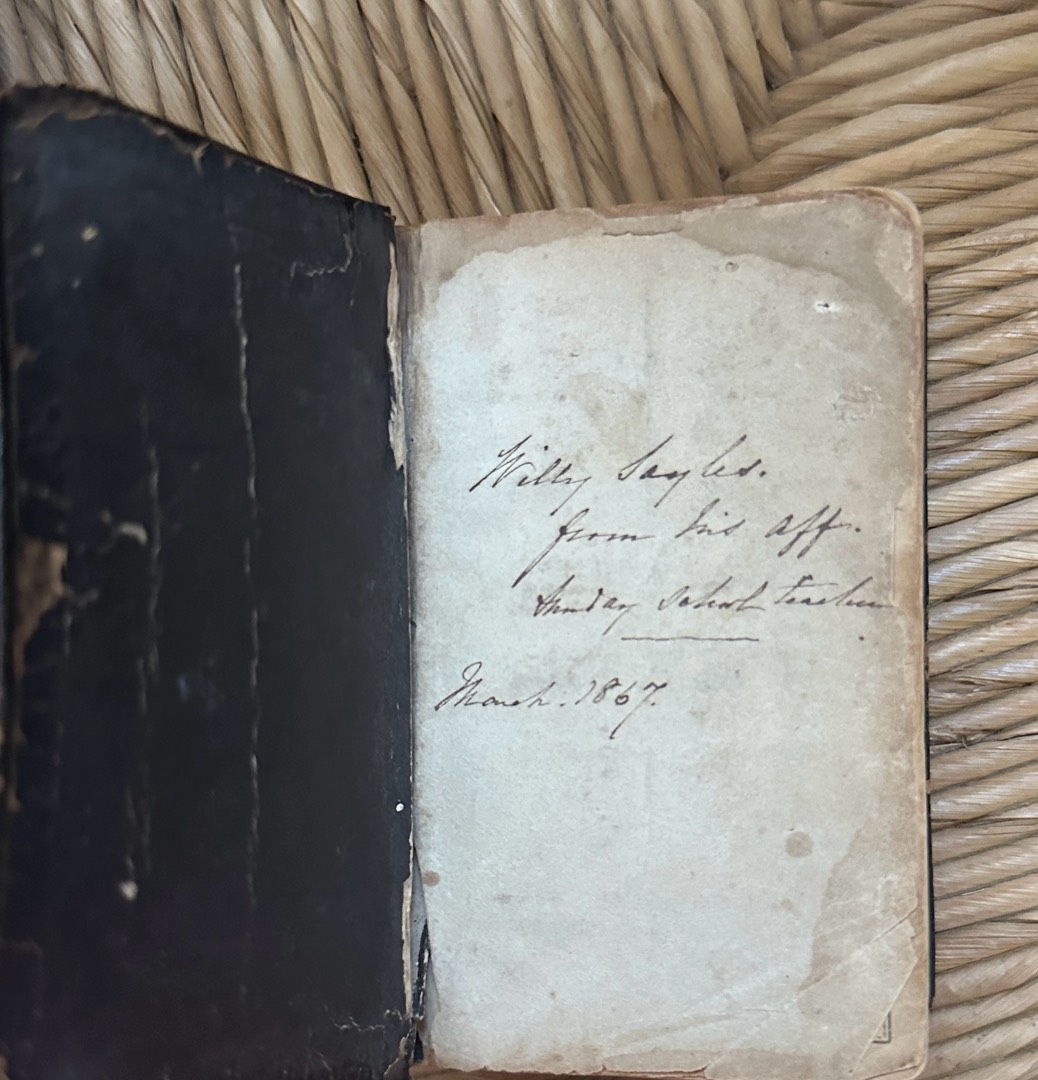 Willy Sayles.
from his aff.
Sunday School teacher
March. 1867.